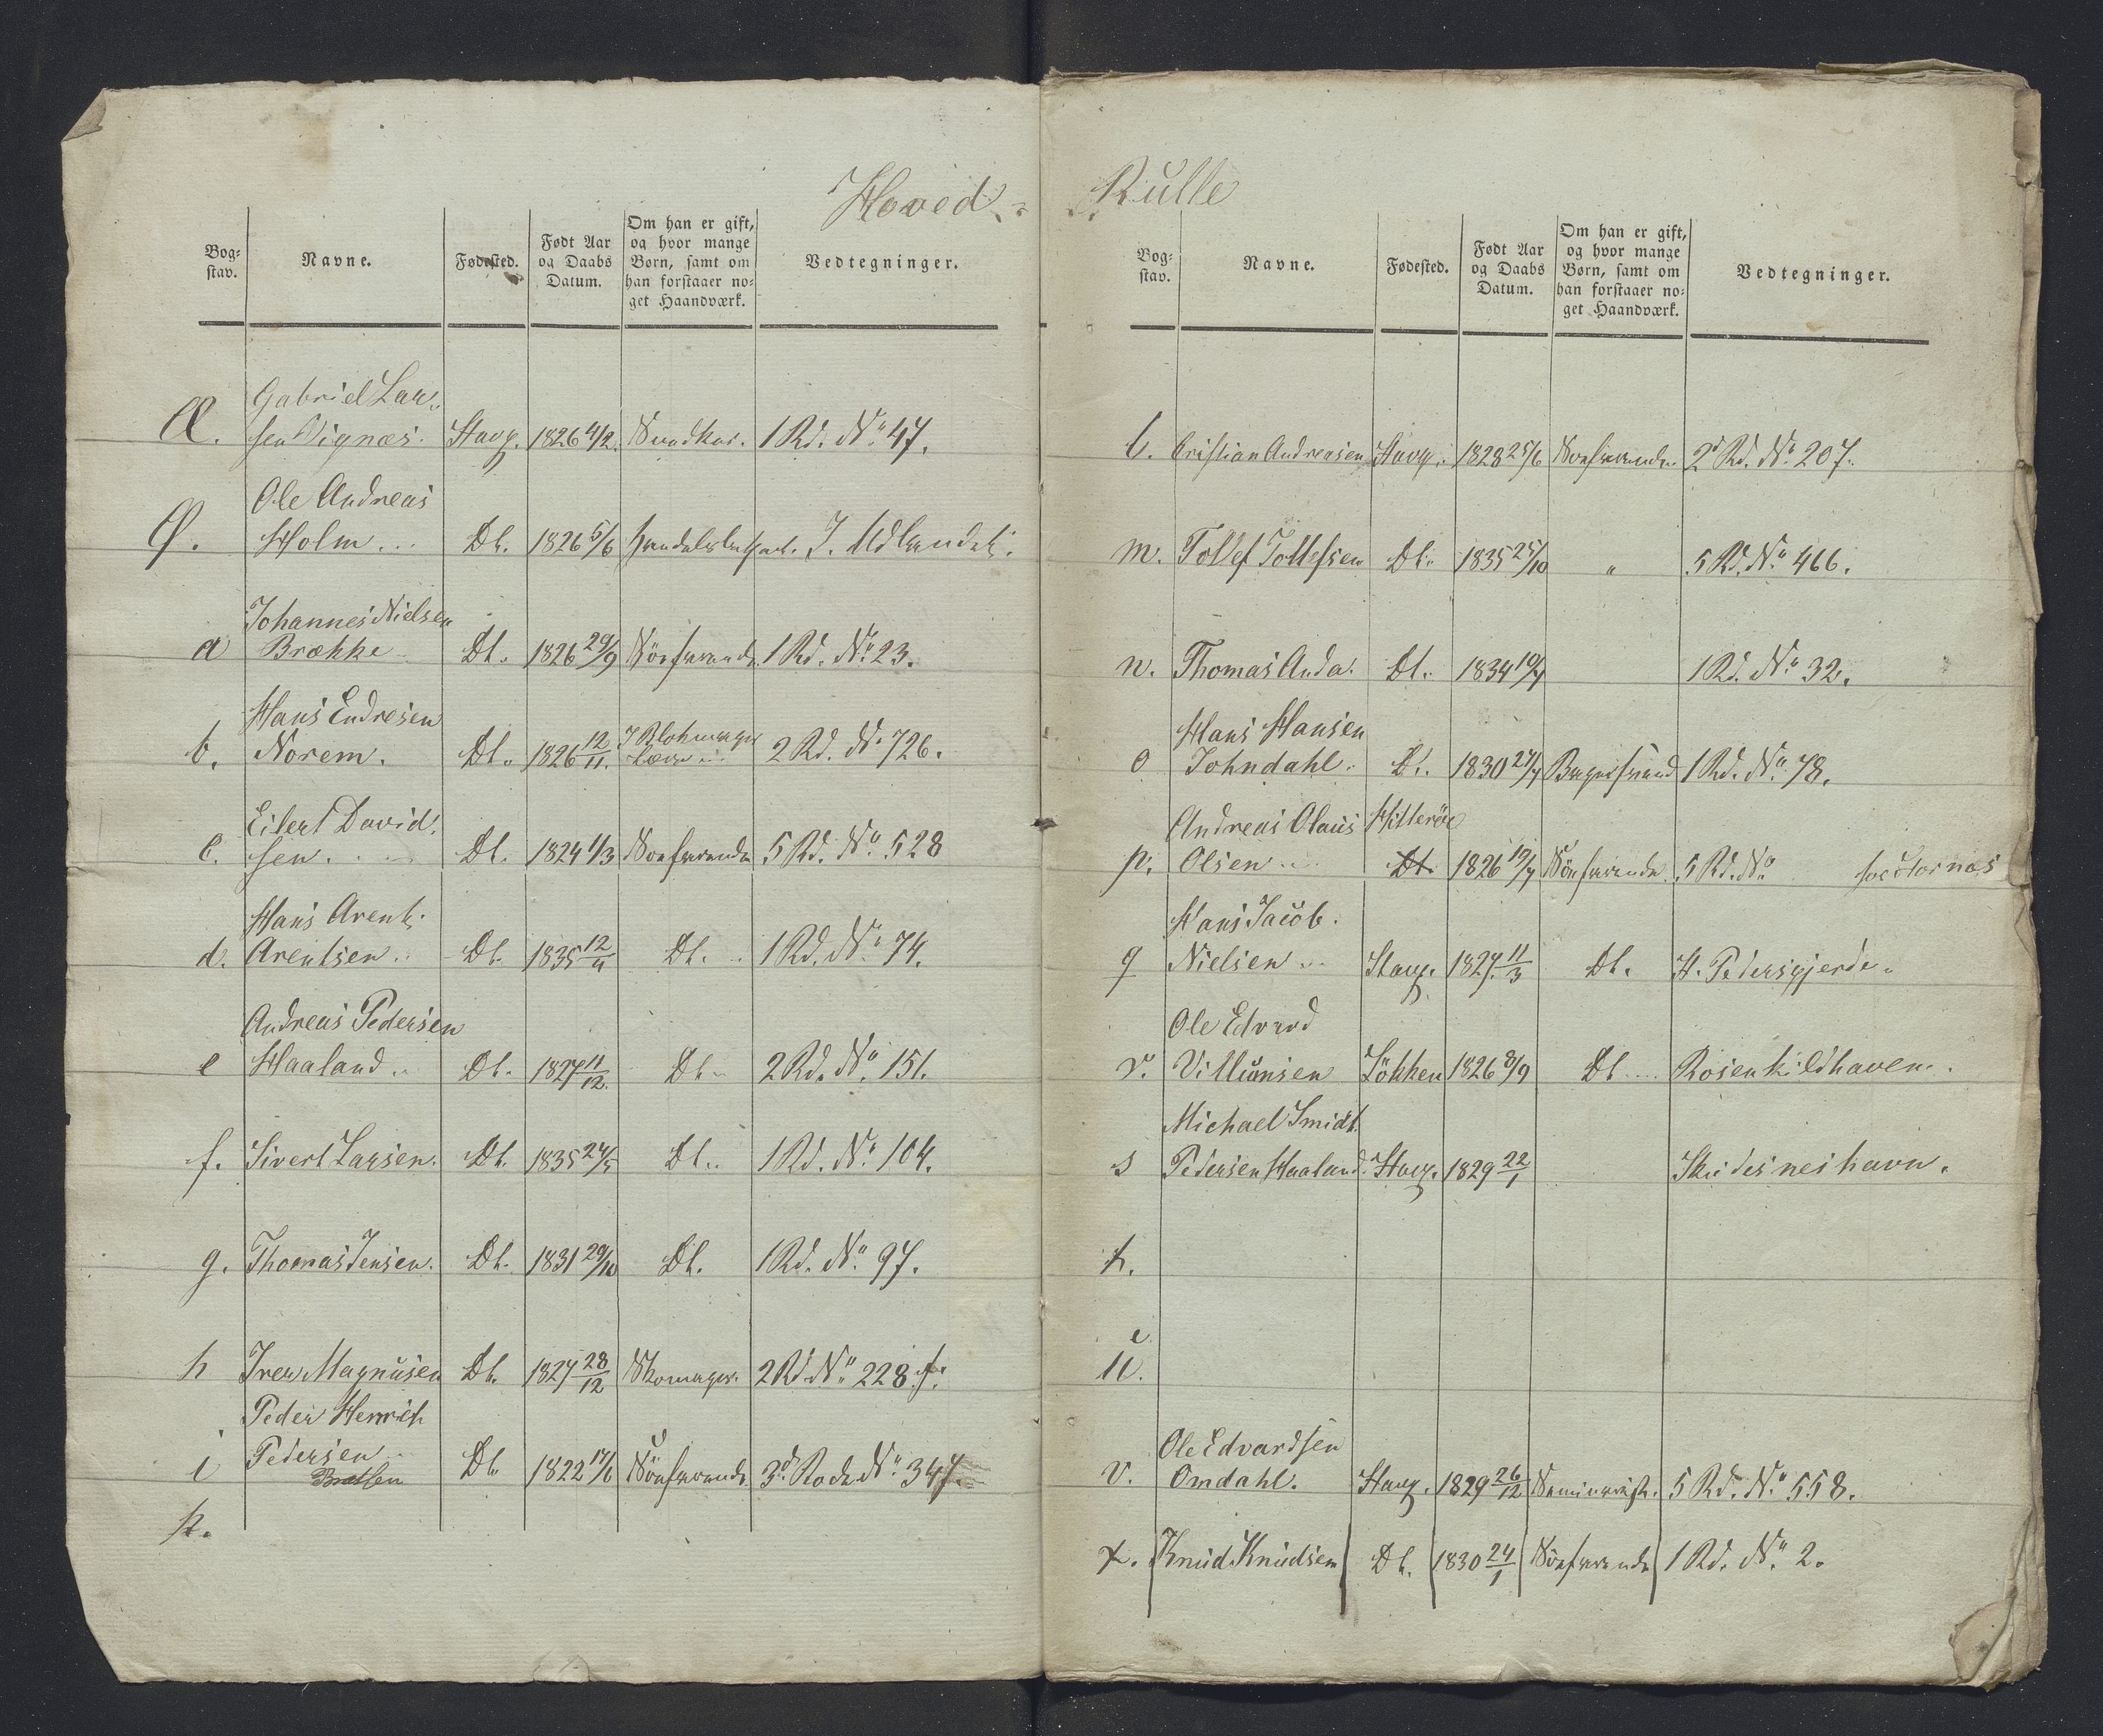 Hoved-
Bog-
stav.
Navne.
Fødested.
Født Aar
og Daabs
Datum.
Om han er gift,
og hvor mange
Børn, samt om
han forstaaer no-
get Haandværk.
Vedtegninger.
Æ. Gabriel Lar-
sen Vignæs. Stavg. 1826 4/2. 1 Rd. No. 47.
Ø. Ole Andreas
Holm... Dt. 1826 5/6 I Udlandet.
a Johannes Nielsen
Brække Dt. 1826 29/9 Söefarende 1 Rd. No. 23.
b. Hans Endresen
Norem. Dt. 1826 12/11. 2 Rd. No. 726.
c. Eilert David-
sen. Dt. 1824 1/3 Söefarende 5 Rd. No. 528
d. Hans Arent
Arentsen.. Dt. 1835 12/4 Dt. 1 Rd. No. 74.
e Andreas Pedersen
Haaland.. Dt. 1827 11/12. Dt. 2 Rd. No. 151.
f. Sivert Larsen. Dt. 1835 24/5 Dt. 1 Rd. No. 104.
g. Thomas Jensen. Dt. 1831 29/10 Dt. 1 Rd. No. 97.
h Iver Magnusen Dt. 1827 28/12 Skomager. 2 Rd. No. 228.
i Peder Henrich
Pedersen Dt. 1822 17/6 Söefarende 3d Rode No. 347.
k.
Rulle
Bog-
stav.
Navne.
Fødested.
Født Aar
og Daabs
Datum.
Om han er gift,
og hvor mange
Børn, samt om
han forstaaer no-
get Haandværk.
Vedtegninger.
l. Cristian Andreasen Stavg. 1828 25/6 Söefarende 2d Rd. No. 207.
m. Tollef Tollefsen Dt. 1835 25/10 " 5 Rd. No. 466.
n. Thomas Anda. Dt. 1834 1 Rd. No. 32.
o Hans Hansen
Johndahl. Dt. 1830 27/7 1 Rd. No. 78.
p. Andreas Olaus Hitteröe
Olsen Dt. 1826 Söefarende 5 Rd. No.
q Hans Jacob
Nielsen Stavg. 1827 11/3 Dt. H. Pedersgjerde.
r. Ole Edvard
Villumsen Løkken 1826 8/9 Dt. Rosenkildhaven.
s Michael Smidt
Pedersen Haaland. Stavg. 1829 22/1 Skudesneshavn.
t.
u.
v. Ole Edvardsen
Omdahl. Stavg. 1829 26/12 Seminarist. 5 Rd. No. 558.
x. Knud Knudsen Dt. 1830 24/1 Söefarende 1 Rd. No. 2.